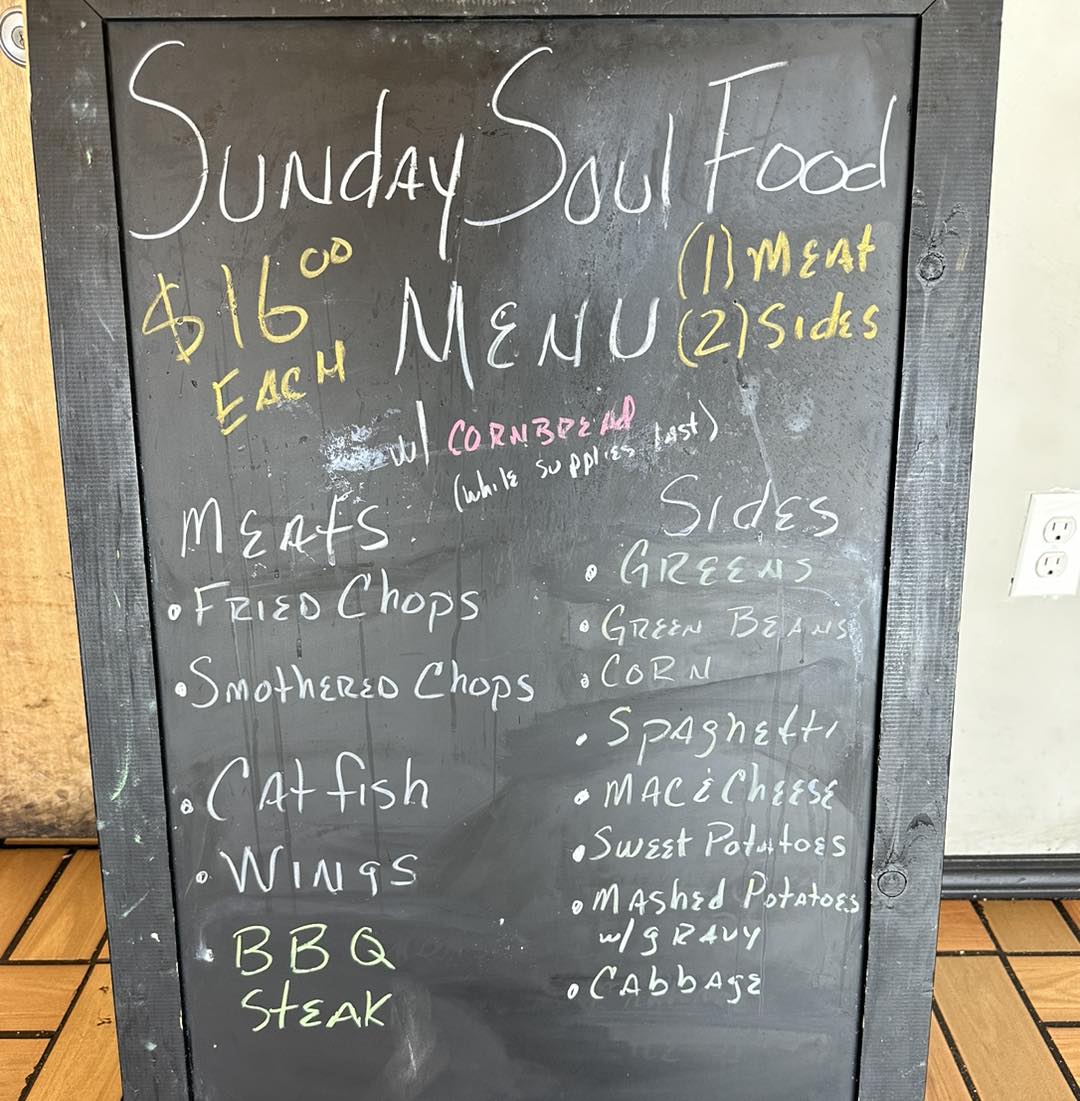 Sunday Soul Food
$16.00
Each
Menu
(1) Meat
(2) Sides
w/ Cornbread
(while supplies last)
Meats
• Fried Chops
• Smothered Chops
• Catfish
• Wings
• BBQ
Steak
Sides
• Greens
• Green Beans
• Corn
• Spaghetti
• Mac & Cheese
• Sweet Potatoes
• Mashed Potatoes
w/ gravy
• Cabbage